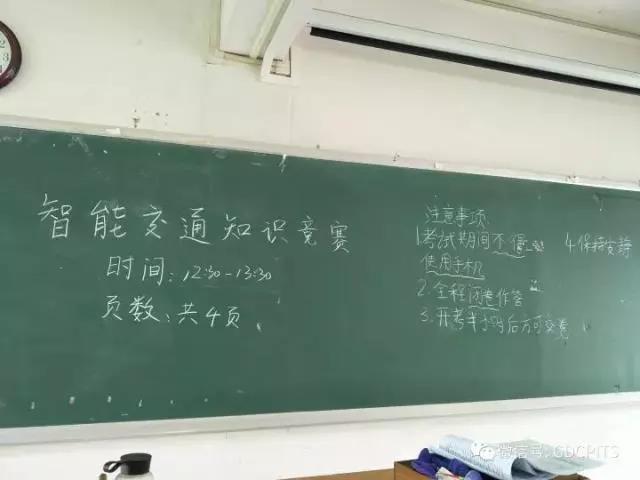 智能交通知识竞赛
时间:12:30-13:30
页数:共4页
注意事项
1.考试期间不得
使用手机
2.全程闭卷作答
3.开考半小时后方可交卷
4.保持安静
微信号:GDCPITS